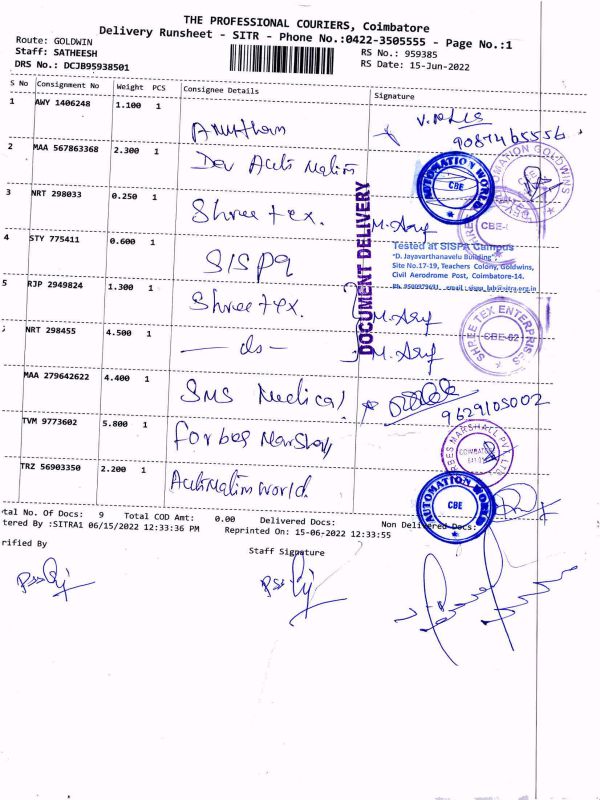 THE PROFESSIONAL COURIERS, Coimbatore
Delivery Runsheet - SITR - Phone No.:0422-3505555 - Page No.:1
Route: GOLDWIN
Staff: SATHEESH
DRS No.: DCJB95938501
RS No.: 959385
RS Date: 15-Jun-2022
S No Consignment No Weight PCS Consignee Details Signature
1 AWY 1406248 1.100 1
9087465556
2 MAA 567863368 2.300 1
AUTOMATION WORLD
CBE
AUTOMATION GOLDWINS
3 NRT 298033 0.250 1 Shree tex.
M. Asif
CBE
DOCUMENT DELIVERY
4 STY 775411 0.600 1 SISPA
Tested at SISPA Campus
"D. Jayavarthanavelu Building",
Site No.17-19, Teachers Colony, Goldwins,
Civil Aerodrome Post, Coimbatore-14.
5 RJP 2949824 1.300 1 Shree tex. M. Asif
SHREE TEX ENTERPRISES
CBE-62
NRT 298455 4.500 1 — do — M. Asif
MAA 279642622 4.400 1 SMS Medical
9629105002
TVM 9773602 5.800 1 Forbes Marshall
BES MARSHALL PVT. LTD
TRZ 56903350 2.200 1 Automation world.
AUTOMATION WORLD
CBE
tal No. Of Docs: 9 Total COD Amt: 0.00 Delivered Docs: Non Delivered Docs:
tered By :SITRA1 06/15/2022 12:33:36 PM Reprinted On: 15-06-2022 12:33:55
rified By Staff Signature